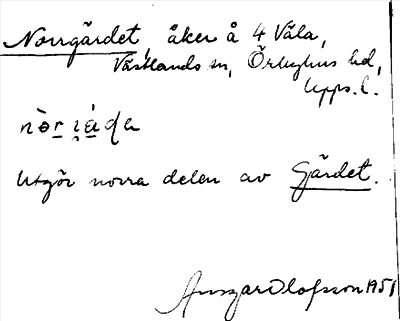 Norrgärdet, åker å 4 Våla,
Västlands sn, Örbyhus hd,
Upps. l.
Utgör norra delen av Gärdet.
Ansgar Olofsson 1951